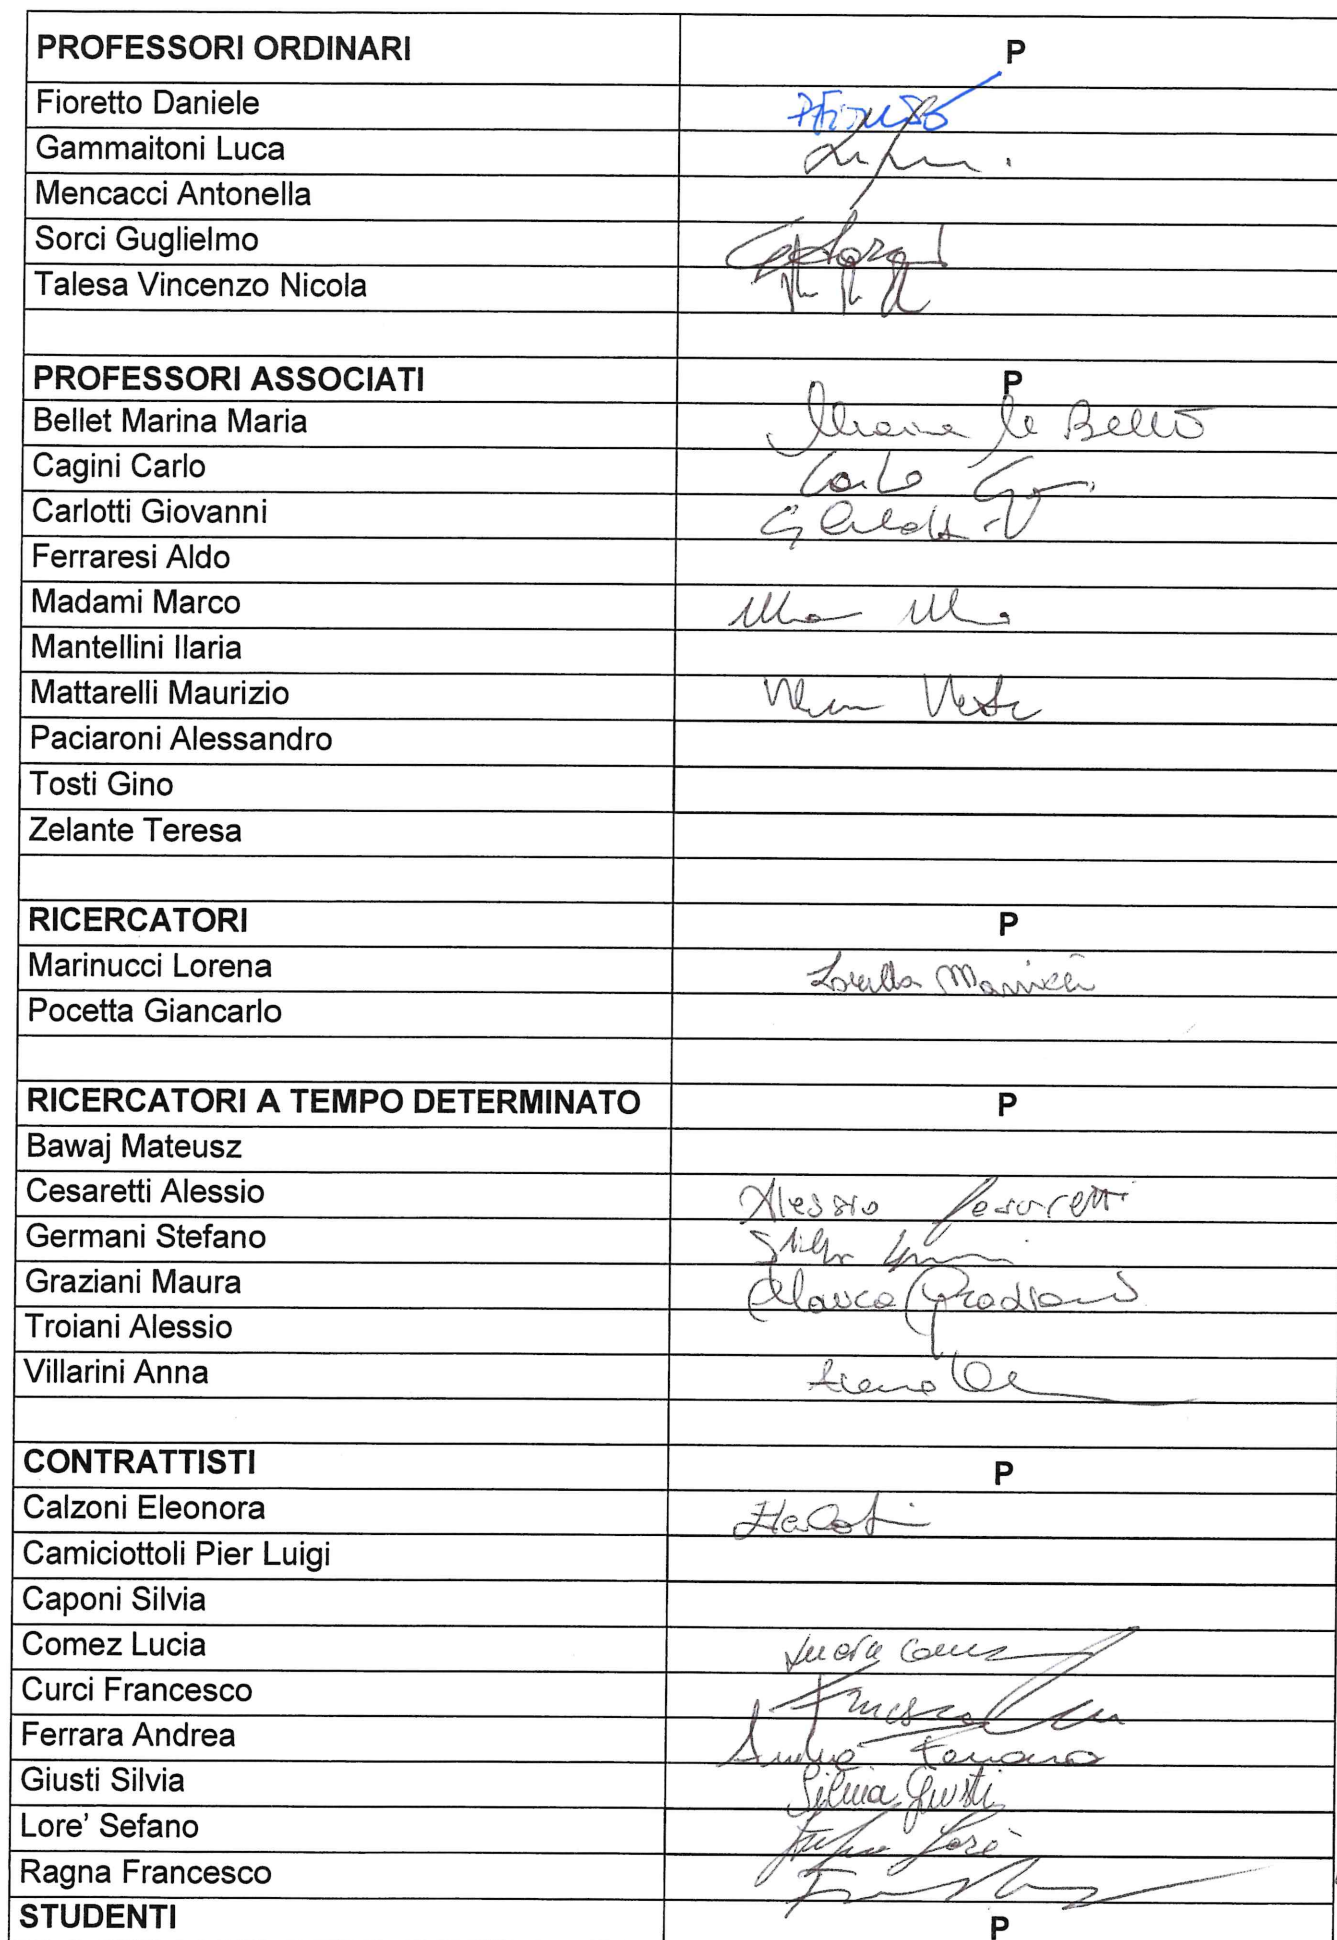 PROFESSORI ORDINARI P
Fioretto Daniele
Gammaitoni Luca
Mencacci Antonella
Sorci Guglielmo
Talesa Vincenzo Nicola
PROFESSORI ASSOCIATI P
Bellet Marina Maria
Cagini Carlo Carlo
Carlotti Giovanni
Ferraresi Aldo
Madami Marco
Mantellini Ilaria
Mattarelli Maurizio
Paciaroni Alessandro
Tosti Gino
Zelante Teresa
RICERCATORI P
Marinucci Lorena
Pocetta Giancarlo
RICERCATORI A TEMPO DETERMINATO P
Bawaj Mateusz
Cesaretti Alessio Alessio Cesaretti
Germani Stefano
Graziani Maura Maura Graziani
Troiani Alessio
Villarini Anna
CONTRATTISTI P
Calzoni Eleonora
Camiciottoli Pier Luigi
Caponi Silvia
Comez Lucia Lucia Comez
Curci Francesco Francesco
Ferrara Andrea Andrea Ferrara
Giusti Silvia Silvia Giusti
Lore' Sefano Stefano Lorè
Ragna Francesco
STUDENTI P